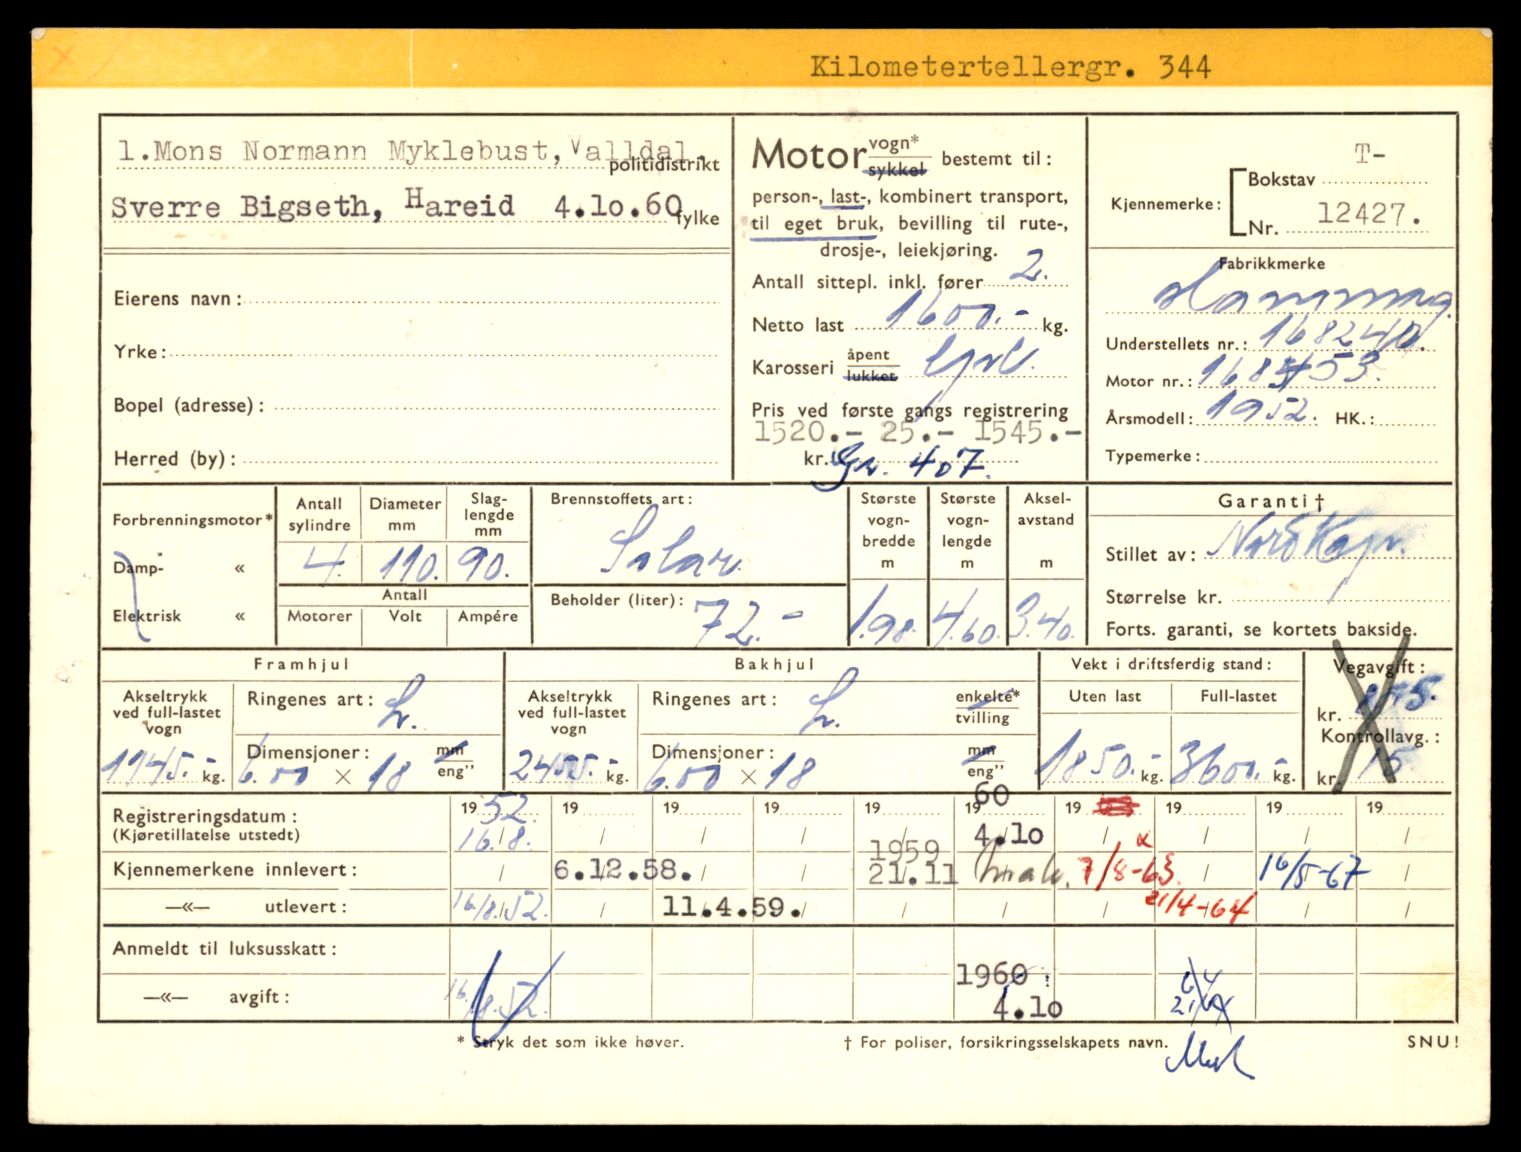 Kilometertellergr. 344
1.Mons Normann Myklebust, Valldal.
politidistrikt
Sverre Bigseth, Hareid 4.10.60
fylke
Eierens navn:
Yrke:
Bopel (adresse):
Herred (by):
Motor vogn* sykkel bestemt til:
person-, last-, kombinert transport,
til eget bruk, bevilling til rute-,
drosje-, leiekjøring.
Antall sittepl. inkl. fører 2.
Netto last 1600.- kg.
Karosseri åpent lukket
Pris ved første gangs registrering
1520.- 25.- 1545.-
kr. Gr. 407.
Kjennemerke: Bokstav T-
Nr. 12427.
Fabrikkmerke
Understellets nr.: 168240.
Motor nr.:
Årsmodell: 1952. HK.:
Typemerke:
Forbrenningsmotor*
Damp- «
Elektrisk «
Antall sylindre 4.
Diameter mm 110.
Slaglengde mm 90.
Antall
Motorer Volt Ampére
Brennstoffets art: Solar
Beholder (liter): 72.-
Største vognbredde m 1.98.
Største vognlengde m 4.60.
Akselavstand m 3.40.
Garanti †
Stillet av:
Størrelse kr.
Forts. garanti, se kortets bakside.
Framhjul
Akseltrykk ved full-lastet vogn 1145.- kg.
Ringenes art: L.
Dimensjoner: mm eng" 6.00 × 18
Bakhjul
Akseltrykk ved full-lastet vogn 2455.- kg.
Ringenes art: L. enkelte* tvilling
Dimensjoner: mm eng" 6.00 × 18
Vekt i driftsferdig stand:
Uten last 1850.- kg.
Full-lastet 3600.- kg.
Vegavgift:
kr.
Kontrollavg.:
kr. 15
Registreringsdatum: 19 52. 19 19 19 19 19 60 19 19 19 19
(Kjøretillatelse utstedt) 16./8. 4.10
Kjennemerkene innlevert: 6.12.58. 1959 21.11 7/8-63. 16/5-67
—«— utlevert: 16/8.52. 11.4.59. 21/4-64
Anmeldt til luksusskatt:
—«— avgift: 16/8.52. 1960 4.10
* Stryk det som ikke høver.
† For poliser, forsikringsselskapets navn.
SNU!